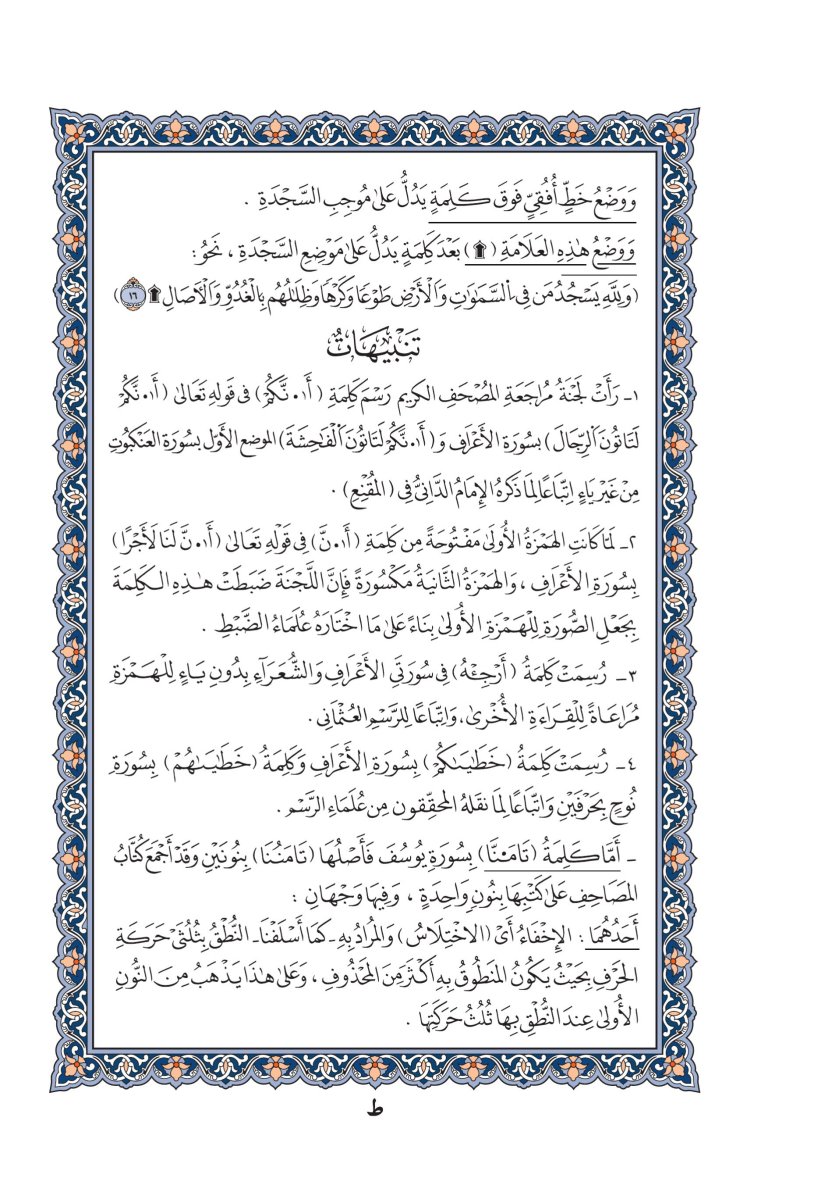 وَوَضْعُ خَطٍّ أُفُقِيٍّ فَوْقَ كَلِمَةٍ يَدُلُّ عَلَىٰ مُوجِبِ السَّجْدَةِ .
وَوَضْعُ هَٰذِهِ العَلَامَةِ (۩) بَعْدَ كَلِمَةٍ يَدُلُّ عَلَىٰ مَوْضِعِ السَّجْدَةِ ، نَحْوُ :
(وَلِلَّهِ يَسْجُدُ مَن فِى اِ۬لسَّمَٰوَٰتِ وَالْأَرْضِ طَوْعًا وَكَرْهًا وَظِلَٰلُهُم بِالْغُدُوِّ وَالْأٓصَالِ ۩ ١٦)
تَنْبِيهَاتٌ
١ـ رَأَتْ لَجْنَةُ مُرَاجَعَةِ المُصْحَفِ الكريم رَسْمَ كَلِمَةِ (أَا۬نَّكُمْ) فى قَولِهِ تَعَالىٰ (أَا۬نَّكُمْ
لَتَاتُونَ اَ۬لرِّجَالَ) بِسُورَةِ الأَعْرَافِ وَ(أَا۬نَّكُمْ لَتَاتُونَ اَ۬لْفَٰحِشَةَ) الموضع الأوّل بِسُورَةِ العَنْكَبُوتِ
مِنْ غَيْرِ يَاءٍ اِتِّبَاعًا لِمَا ذَكَرَهُ الإِمَامُ الدَّانِيُّ فِى (المُقْنِعِ) .
٢ـ لَمَّا كَانَتِ الهَمْزَةُ الأُولَىٰ مَفْتُوحَةً مِن كَلِمَةِ (أَا۬نَّ) فِى قَوْلِهِ تَعَالىٰ (أَا۬نَّ لَنَا لَأَجْرًا)
بِسُورَةِ الأَعْرَافِ ، وَالهَمْزَةُ الثَّانِيَةُ مَكْسُورَةً فَإِنَّ اللَّجْنَةَ ضَبَطَتْ هَٰذِهِ الكَلِمَةَ
بِجَعْلِ الصُّورَةِ لِلْهَمْزَةِ الأُولَىٰ بِنَاءً عَلَىٰ مَا اخْتَارَهُ عُلَمَاءُ الضَّبْطِ .
٣ـ رُسِمَتْ كَلِمَةُ (أَرْجِئْهُ) فِى سُورَتَيِ الأَعْرَافِ وَالشُّعَرَآءِ بِدُونِ يَاءٍ لِلْهَمْزَةِ
مُرَاعَاةً لِلْقِرَاءَةِ الأُخْرىٰ، وَاتِّبَاعًا لِلرَّسْمِ العُثْمَانِى .
٤ـ رُسِمَتْ كَلِمَةُ (خَطَٰيَٰكُمْ) بِسُورَةِ الأَعْرَافِ وَكَلِمَةُ (خَطَٰيَٰهُمْ) بِسُورَةِ
نُوحٍ بِحَرْفَيْنِ وَاتِّبَاعًا لِمَا نقَلَهُ المحقّقون مِن عُلَمَاءِ الرَّسْمِ .
ـ أَمَّا كَلِمَةُ (تَامَ۬نَّا) بِسُورَةِ يُوسُفَ فَأَصْلُهَا (تَامَنُنَا) بِنُونَيْنِ وَقَدْ أَجْمَعَ كُتَّابُ
المَصَاحِفِ عَلَىٰ كَتْبِهَا بِنُونٍ وَاحِدَةٍ ، وَفِيهَا وَجْهَانِ :
أَحَدُهُمَا : الإِخْفَاءُ أَىْ (الاخْتِلَاسُ) وَالمُرَادُ بِهِ ـ كَمَا أَسْلَفْنَا ـ النُّطْقُ بِثُلُثَىْ حَرَكَةِ
الحَرْفِ بِحَيْثُ يَكُونُ المَنطُوقُ بِهِ أَكْثَرَ مِنَ المَحْذُوفِ ، وَعَلَىٰ هَٰذَا يَذْهَبُ مِنَ النُّونِ
الأُولَىٰ عِندَ النُّطْقِ بِهَا ثُلُثُ حَرَكَتِهَا .
ط